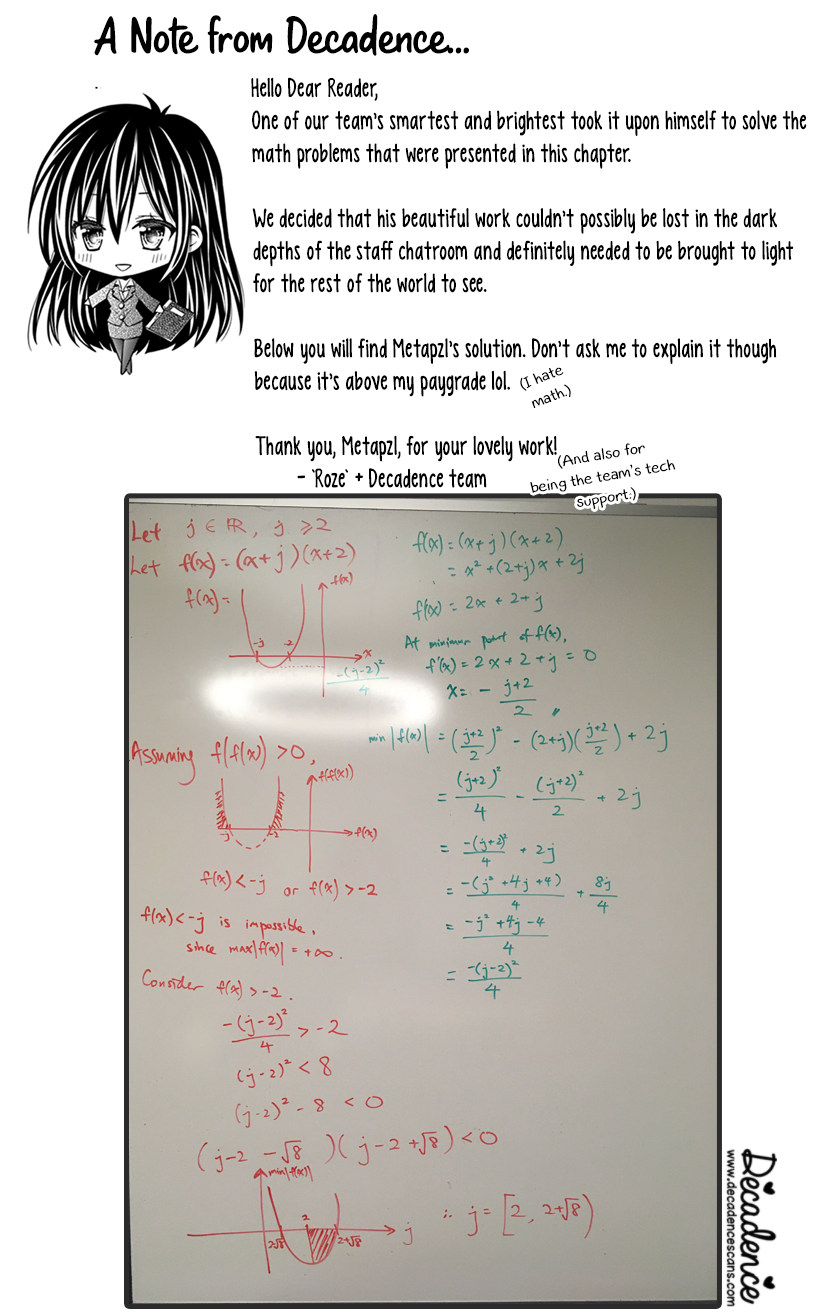 A Note from Decadence...
Hello Dear Reader,
One of our team's smartest and brightest took it upon himself to solve the
math problems that were presented in this chapter.
We decided that his beautiful work couldn't possibly be lost in the dark
depths of the staff chatroom and definitely needed to be brought to light
for the rest of the world to see.
Below you will find Metapzl's solution. Don't ask me to explain it though
because it's above my paygrade lol. (I hate
math.)
Thank you, Metapzl, for your lovely work!
- `Roze` + Decadence team
(And also for
being the team's tech
support.)
Let j ∈ ℝ, j ≥ 2
Let f(x) = (x+j)(x+2)
f(x) =
f(x)
-j -2 x
-(j-2)²/4
Assuming f(f(x)) > 0,
f(f(x))
-j -2 f(x)
f(x) < -j or f(x) > -2
f(x) < -j is impossible,
since max|f(x)| = +∞.
Consider f(x) > -2.
-(j-2)²/4 > -2
(j-2)² < 8
(j-2)² - 8 < 0
(j-2 -√8)(j-2+√8) < 0
min|f(x)|
2 j
2-√8 2+√8
∴ j = [2, 2+√8)
f(x) = (x+j)(x+2)
= x² + (2+j)x + 2j
f'(x) = 2x + 2 + j
At minimum point of f(x),
f'(x) = 2x + 2 + j = 0
x = - (j+2)/2 〃
min|f(x)| = ((j+2)/2)² - (2+j)((j+2)/2) + 2j
= (j+2)²/4 - (j+2)²/2 + 2j
= -(j+2)²/4 + 2j
= -(j² + 4j + 4)/4 + 8j/4
= (-j² + 4j - 4)/4
= -(j-2)²/4
Decadence
www.decadencescans.com